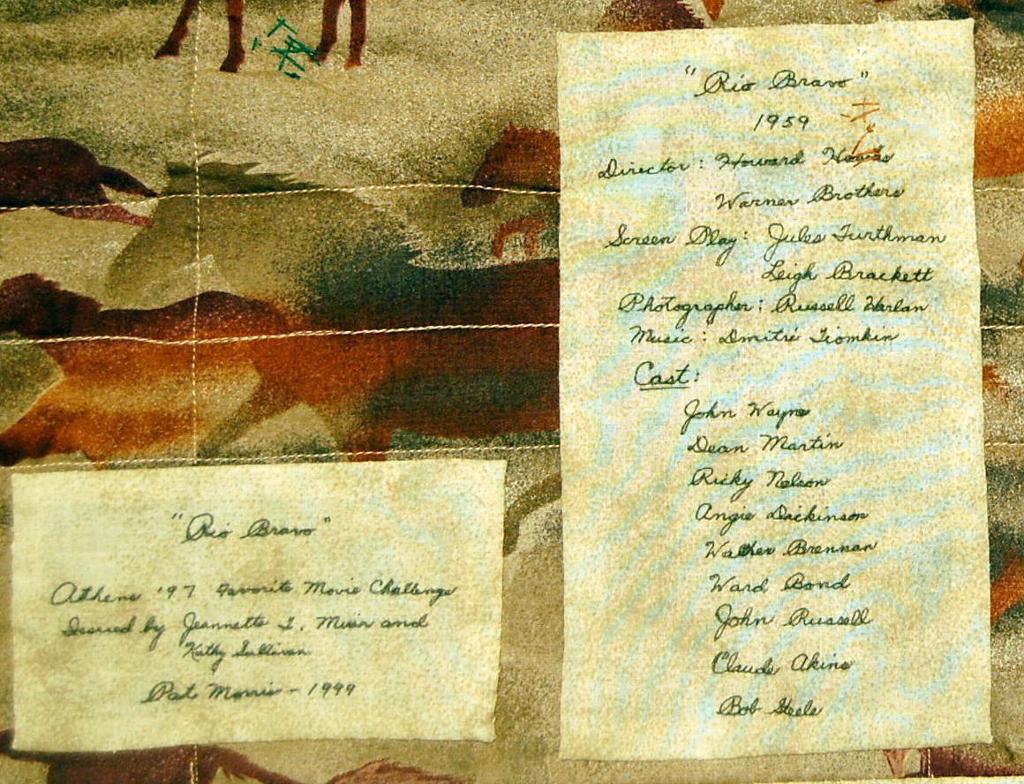 "Rio Bravo"
1959
Director: Howard Hawks
Warner Brothers
Screen Play: Jules Furthman
Leigh Brackett
Photographer: Russell Harlan
Music: Dmitri Tiomkin
Cast:
John Wayne
Dean Martin
Ricky Nelson
Angie Dickinson
Walter Brennan
Ward Bond
John Russell
Claude Akins
Bob Steele
"Rio Bravo"
Athens '97 Favorite Movie Challenge
Issued by Jeannette T. Muir and
Kathy Sullivan
Pat Morris - 1999